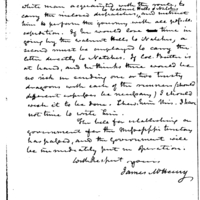 white man acquainted with the route, to
carry the enclosed dispatches, and instruct
him to perform the journey with all possible
expedition. If he would lose time in
going by the Walnut Hills to Natchez, a
second must be employed to carry the
letter directly to Natchez. If Col. Butler is
at hand, and he thinks there would be
no risk in sending one or two trusty
dragoons with each of the runners (should
different couriers be necessary) I should
wish it to be done. Shew him this. I have
not time to write him.
The bill for establishing a
government for the Mississippi territory
has passed, and the government will
be immediately put in operation.
yours
James McHenry